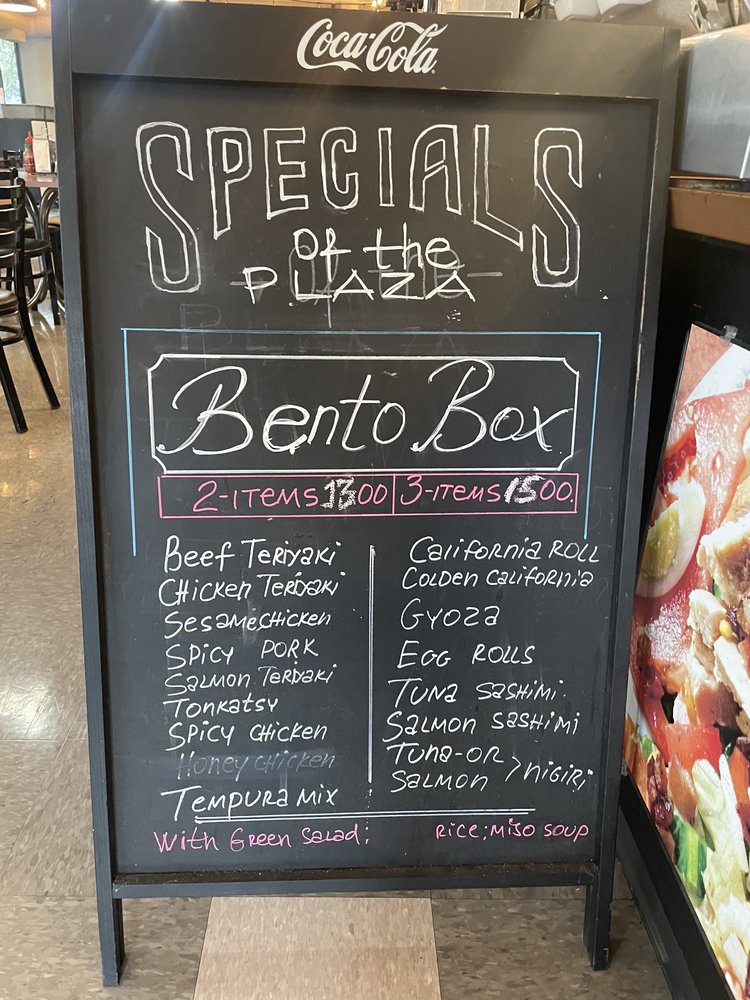 Coca-Cola
SPECIALS
Of the
PLAZA
Bento Box
2-ITEMS 1300 3-ITEMS 1500.
Beef Teriyaki
Chicken Teriyaki
Sesame Chicken
Spicy PORK
Salmon Teriyaki
Tonkatsy
Spicy Chicken
Honey Chicken
Tempura Mix
California ROLL
Colden California
Gyoza
Egg ROLLS
Tuna Sashimi
Salmon Sashimi
Tuna-or
Salmon > nigiri
With Green Salad; Rice; Miso Soup